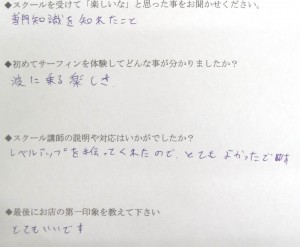 ◆スクールを受けて「楽しいな」と思った事をお聞かせください。
専門知識を知れたこと
◆初めてサーフィンを体験してどんな事が分かりましたか？
波に乗る楽しさ
◆スクール講師の説明や対応はいかがでしたか？
レベルアップを手伝ってくれたので、とてもよかったです
◆最後にお店の第一印象を教えて下さい
とてもいいです